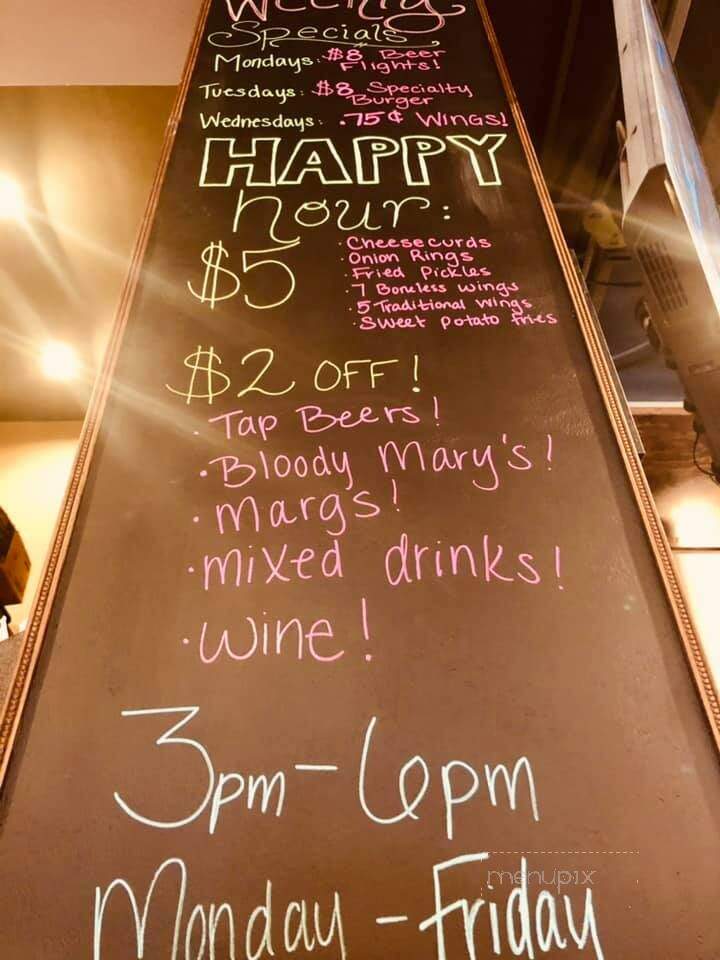 Weekly
Specials
Mondays: $8 Beer
Flights!
Tuesdays: $8 Specialty
Burger
Wednesdays: .75¢ WINGS!
HAPPY
hour:
$5
· Cheesecurds
· Onion Rings
· Fried Pickles
· 7 Boneless wings
· 5 Traditional wings
· Sweet Potato fries
$2 OFF!
· Tap Beers!
· Bloody Mary's!
· Margs!
· mixed drinks!
· wine!
3pm - 6pm
Monday - Friday
menupix